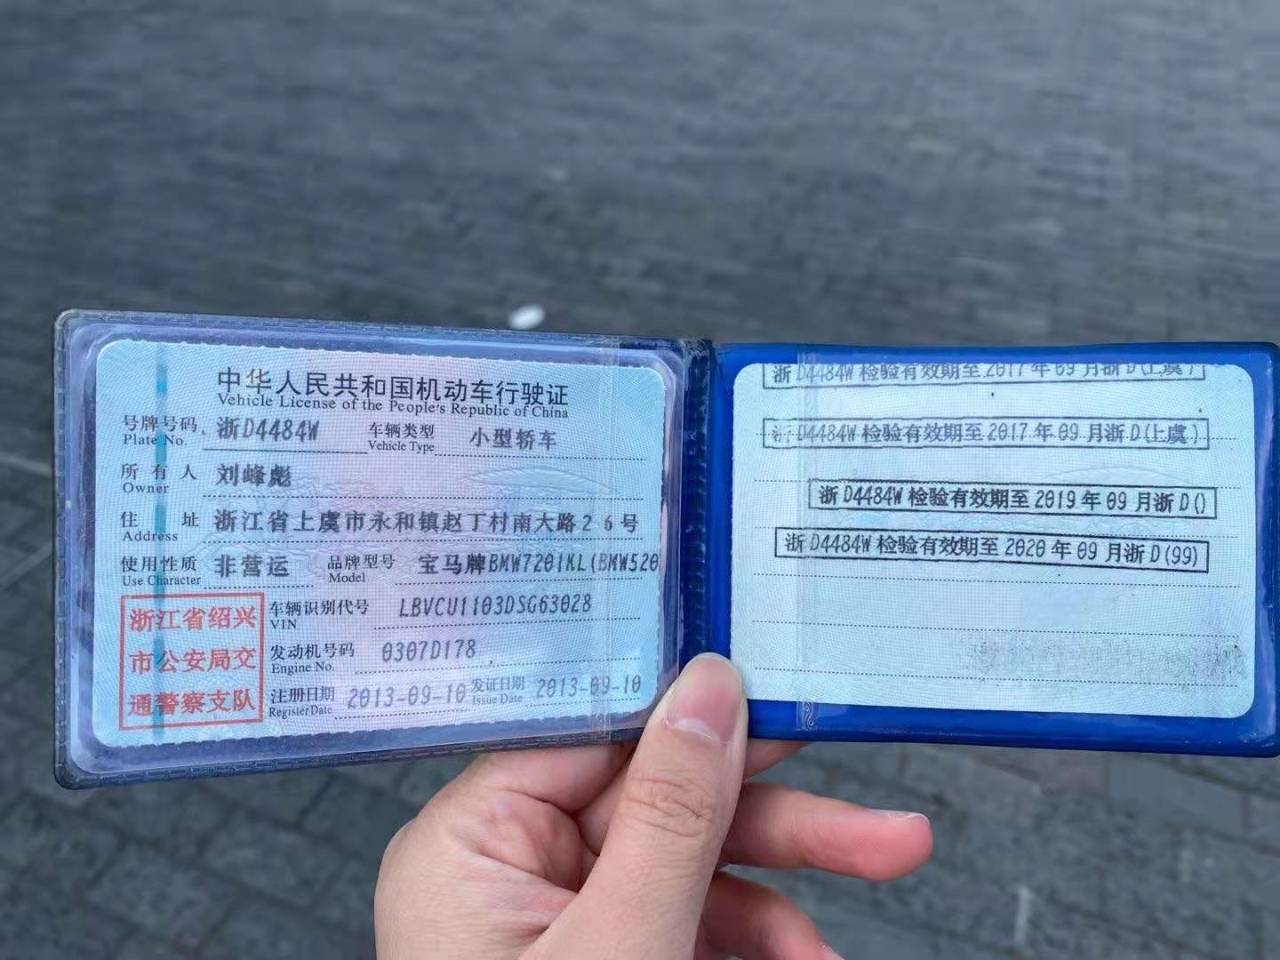 中华人民共和国机动车行驶证
Vehicle License of the People's Republic of China
号牌号码 浙D4484W 车辆类型 小型轿车
Plate No. Vehicle Type
所有人 刘峰彪
Owner
住址 浙江省上虞市永和镇赵丁村南大路26号
Address
使用性质 非营运 品牌型号 宝马牌BMW7201KL(BMW520
Use Character Model
浙江省绍兴
市公安局交
通警察支队
车辆识别代号 LBVCU1103DSG63028
VIN
发动机号码 0307D178
Engine No.
注册日期 2013-09-10 发证日期 2013-09-10
Register Date Issue Date
浙D4484W检验有效期至2017年09月浙D(上虞)
浙D4484W检验有效期至2017年09月浙D(上虞)
浙D4484W检验有效期至2019年09月浙D()
浙D4484W检验有效期至2020年09月浙D(99)